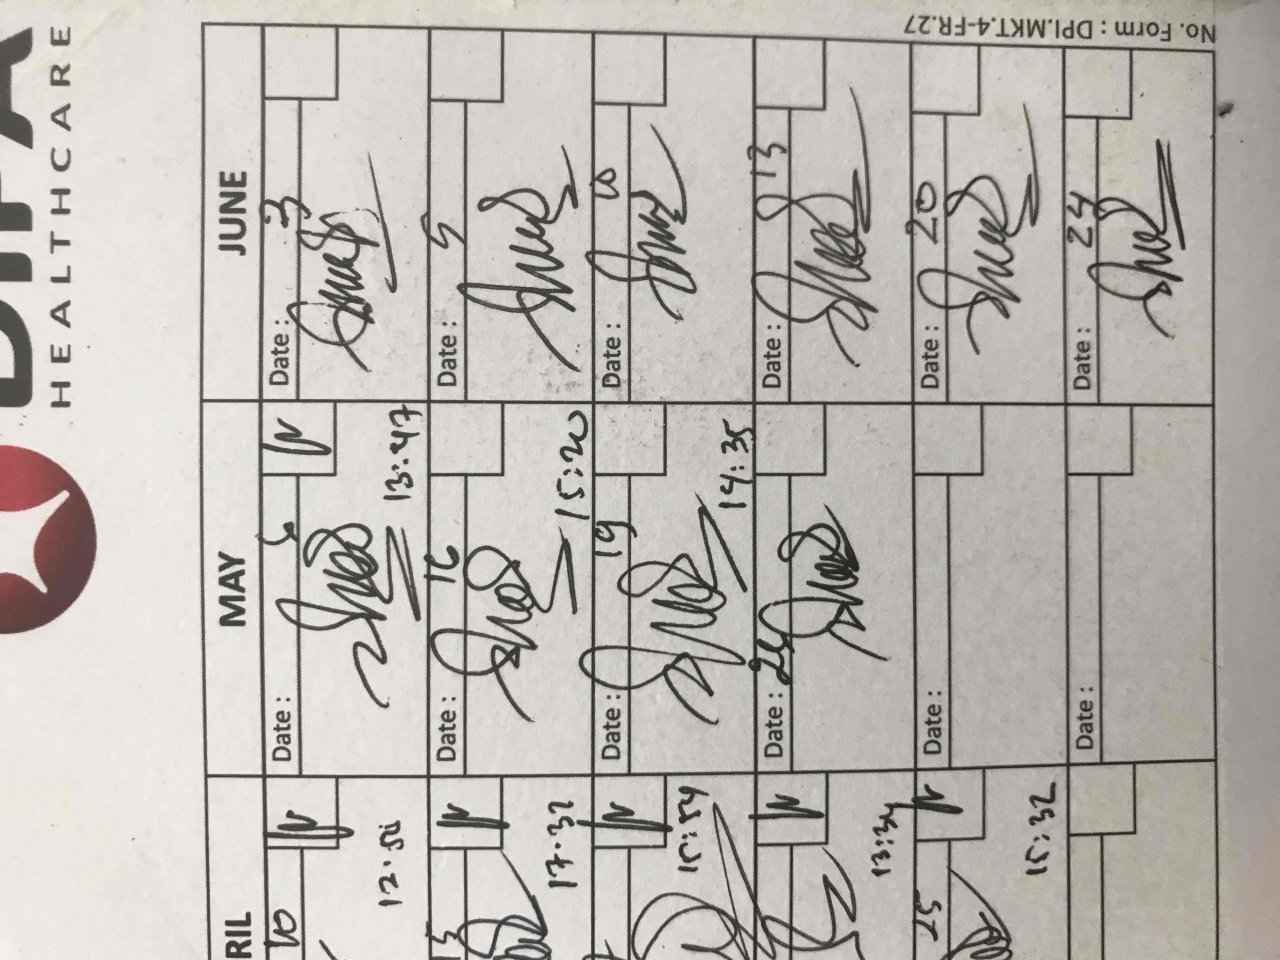 HEALTHCARE
RIL MAY JUNE
10 Date : 6 Date : 3
12.50 13:47
15 Date : 16 Date : 5
17.32 15:20
Date : 19 Date : 10
15:54 14:35
Date : 24 Date : 13
13:34
25 Date : Date : 20
15:32
Date : Date : 24
No. Form : DPI.MKT.4-FR.27